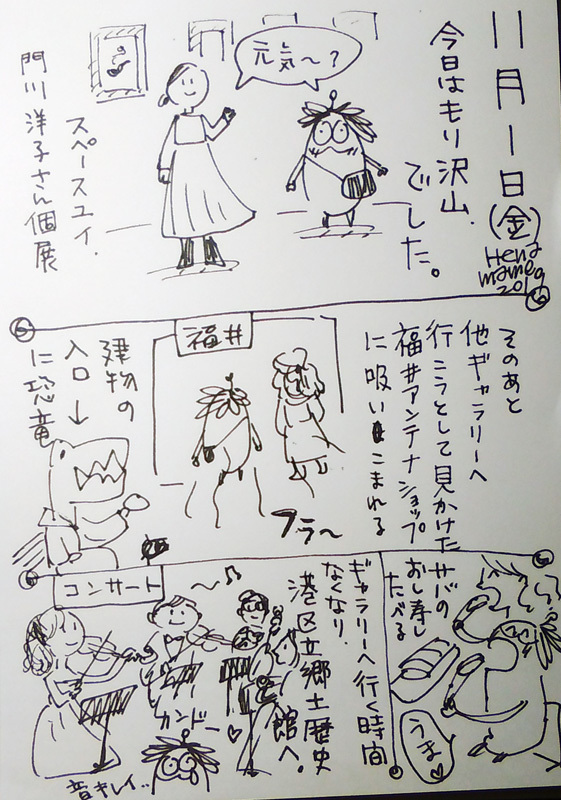 11月1日(金)
Hena
mameg
2019
今日はもり沢山
でした。
元気〜？
スペースユイ.
門川洋子さん個展
そのあと
他ギャラリーへ
行こうとして見かけた
福井アンテナショップ
に吸いこまれる
福井
フラ〜
建物の
入口↓
に恐竜
サバの
おし寿し
たべる
うま♡
ギャラリーへ行く時間
なくなり
港区立郷土歴史
館へ。
コンサート
〜♪
カンドー♡
音キレイ..